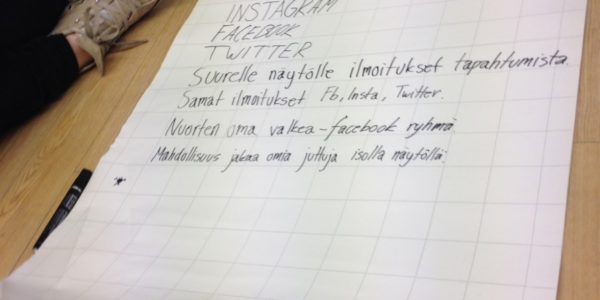 INSTAGRAM
FACEBOOK
TWITTER
SUURELLE NÄYTÖLLE ILMOITUKSET TAPAHTUMISTA.
SAMAT ILMOITUKSET Fb, Insta, Twitter.
NUORTEN OMA VALKEA-FACEBOOK RYHMÄ
MAHDOLLISUUS JAKAA OMIA JUTTUJA ISOLLA NÄYTÖLLÄ.